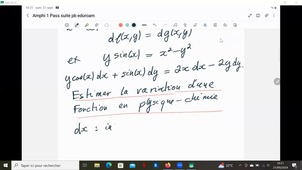 Amphi 1 Pass suite pb eduroam
df(x,y) = dg(x,y)
et y sin(x) = x²-y²
y cos(x) dx + sin(x) dy = 2x dx - 2y dy
Estimer la variation d'une
Fonction en physique-chimie
dx : in
Taper ici pour rechercher